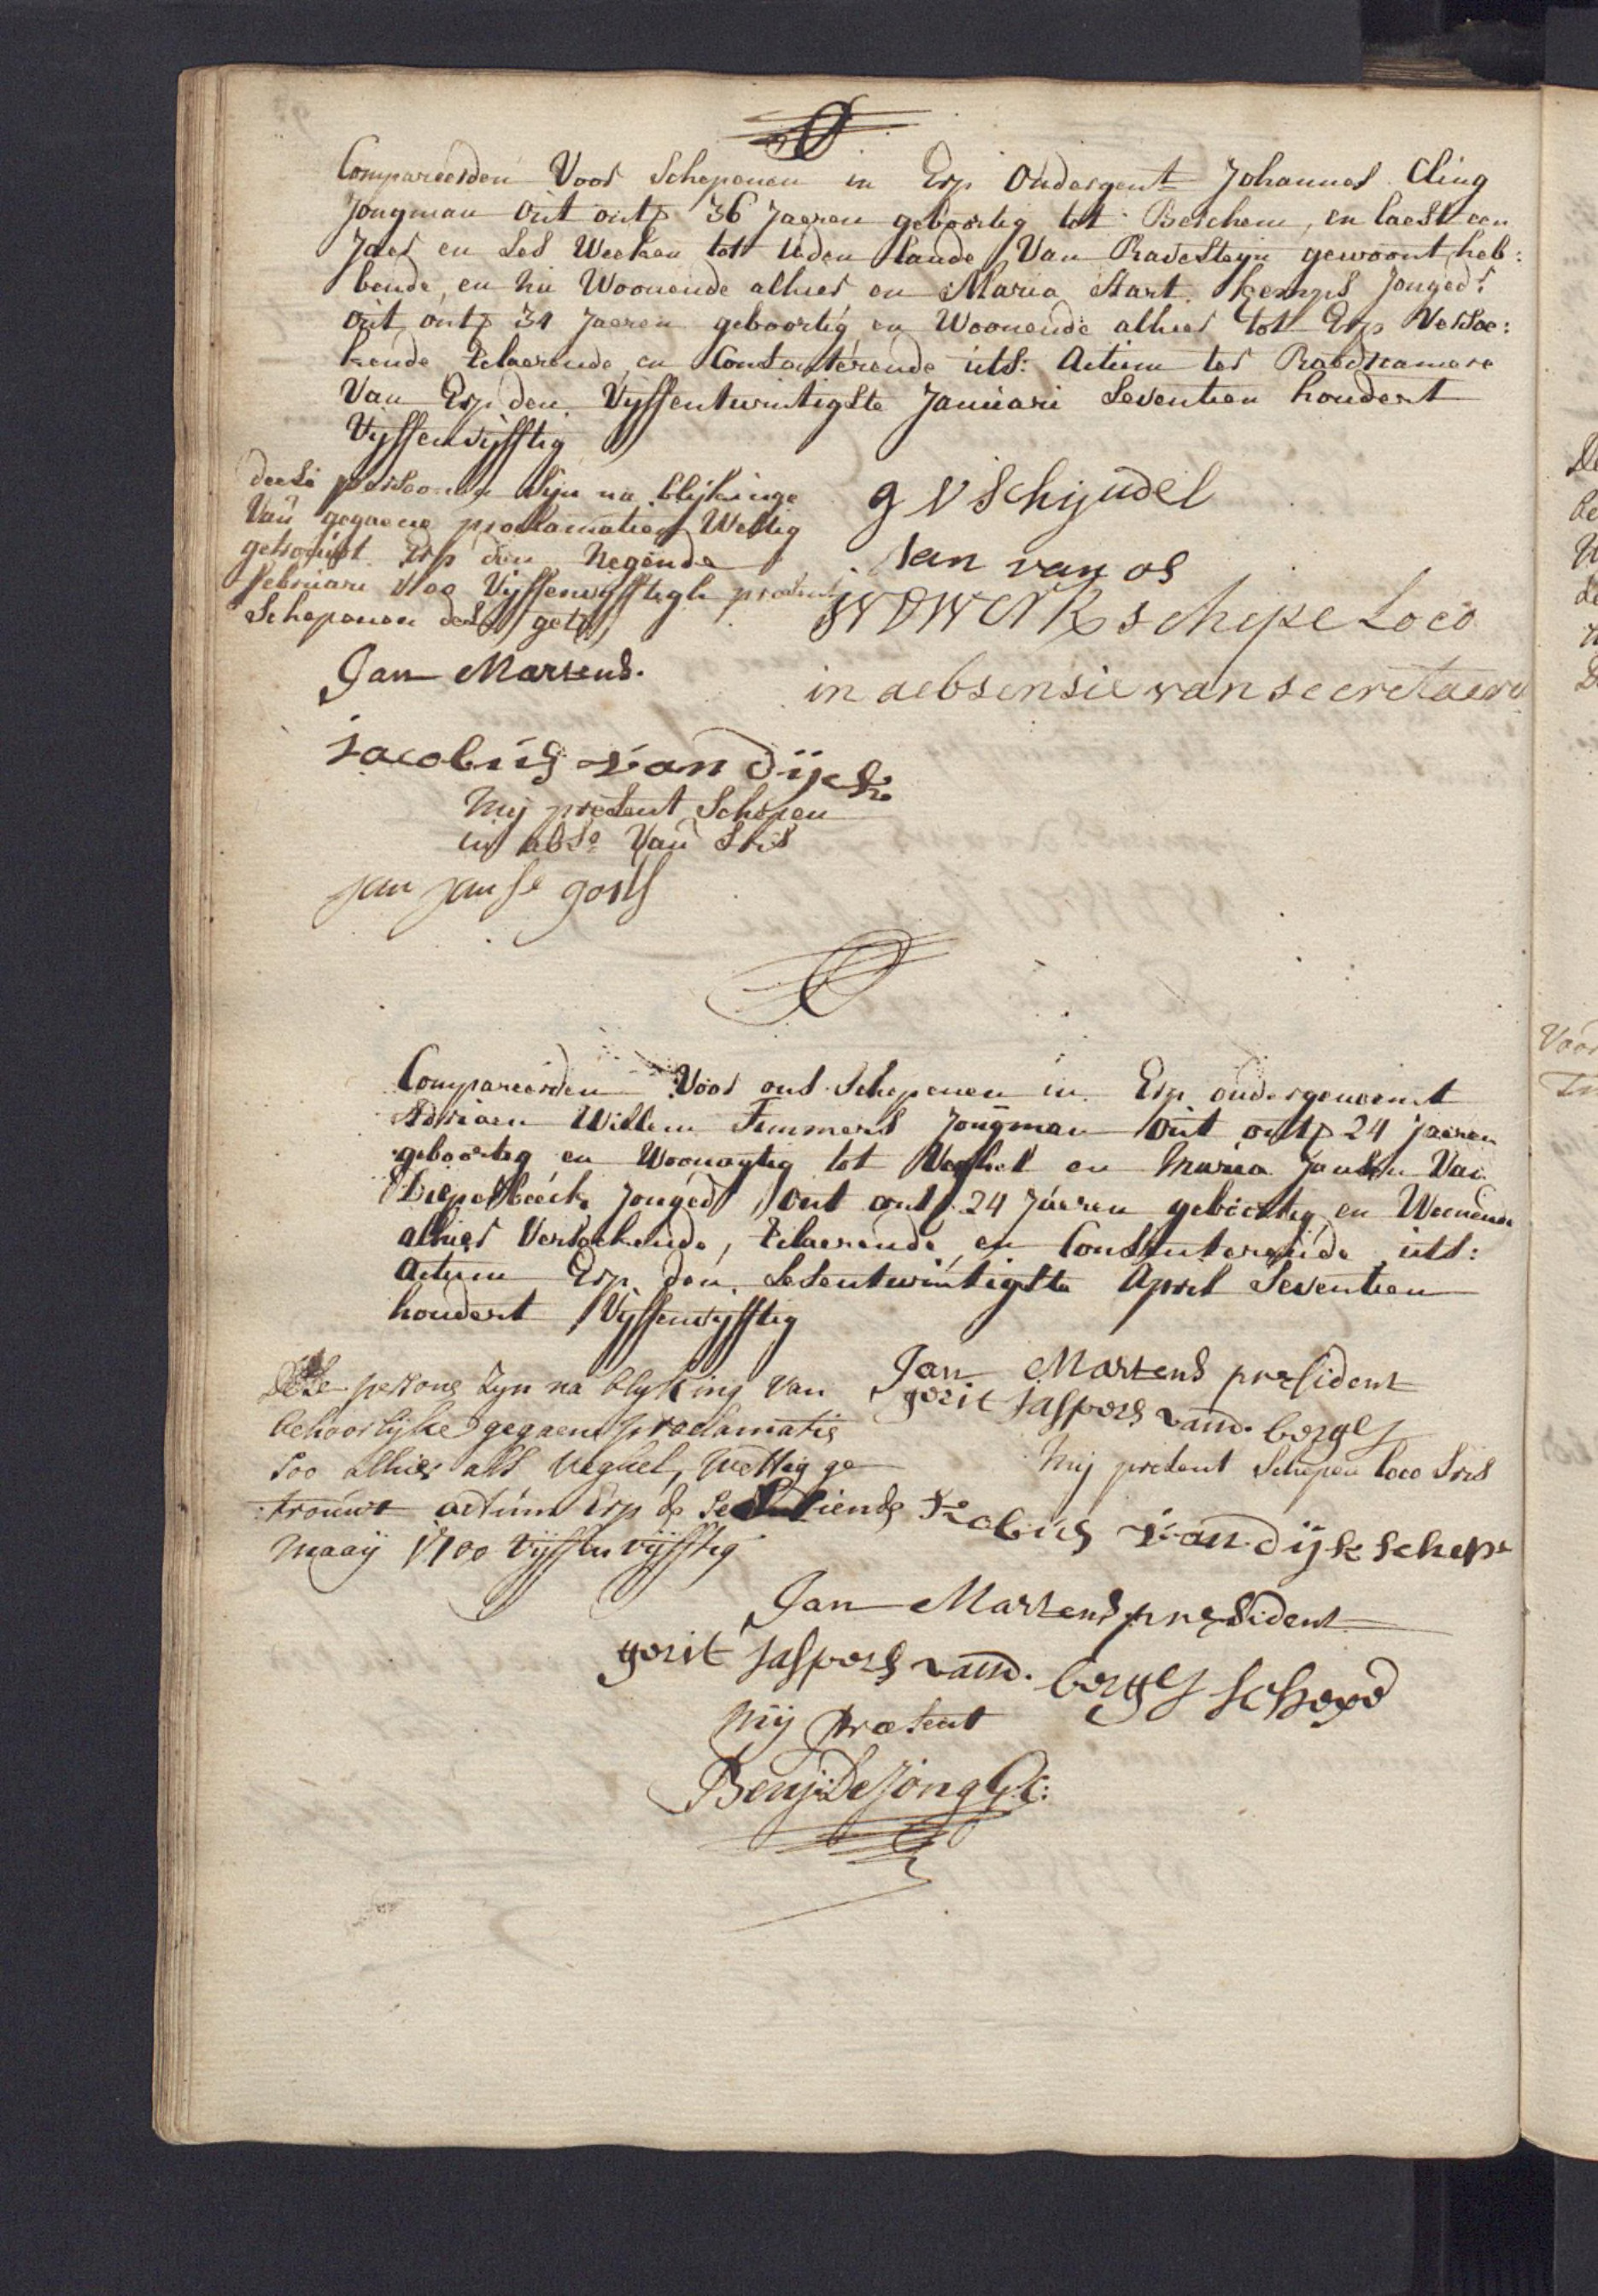 Compareerden Voor Schepenen in Erp Ondergent Johannes Cling
Jongman Out ontr 36 Jaeren geboortig tot Berchem, en laest een
Jaer en Ses Weeken tot Uden Lande Van Ravesteyn gewoont heb:
bende, en nu Woonende alhier en Maria Aart Kemps Jonged:
out ontr 31 Jaeren geboortig en Woonende alhier tot Erp Versoe:
kende Relaerende en Consenterende uts: Actum ter Raedkamere
Van Erp den Vyffentwintigste Januari Seventien hondert
Vyffenvyfftig
deese persoonen Syn na blykinge
Van gegaene proclamatien Wettig
getrouwt Erp den Negende
februari 1700 Vyffenvyfftigh present
Schepenen deese getr
g v Schyndel
Jan van os
schepe Loco
in aebsensie van secretaeris
Jan Martens.
Jacobus van dijck
Mij present Schepen
in abse Van Sris
Jan Janse gorts
Compareerden Voor ons Schepenen in Erp ondergenoemt
Adriaen Willem Timmers Jongman Out ontr 24 Jaeren
geboortig en Woonagtig tot Veghel en Maria Jansen Van
Diepenbeeck Jonged out ontr 24 Jaeren geboortig en Woonende
alhier Versoekende, Relaerende en Consenterende uts:
Actum Erp den Sesentwintigste April Seventien
hondert Vyffenvyfftig
Dese persone Zyn na blyking Van
behoorlyke gegaene proclamatie
Soo alhier als Veghel, Wettig ge
trouwt actum Erp de Sestiende
Maaij 1700 vyffen vyfftig
Jan Martens president
gerit Jaspers vand. berge
Mij present Schepen loco Sris
Jacobus van dijk schepe
Jan Martens president
gerit Jaspers vand. berge schepe
Mij Present
Benj: De Jong